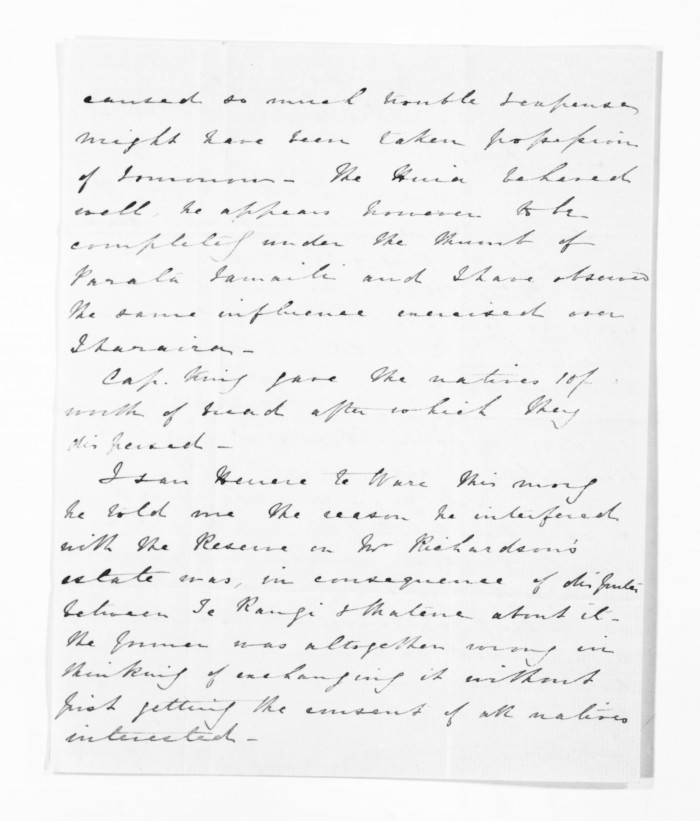 caused so much trouble & expense
might have been taken possession
of tomorrow - Te Huia behaved
well, he appears however to be
completely under the thumb of
and I have observed
the same influence exercised over
Iharaira -
Cap. King gave the natives 10/
worth of bread after which they
dispersed -
I saw Henere te Ware this morng
he told me the reason he interfered
with the Reserve on Mr Richardson's
estate was, in consequence of disputes
between Te Rangi & about it -
the former was altogether wrong in
thinking of exchanging it without
first getting the consent of all natives
interested -